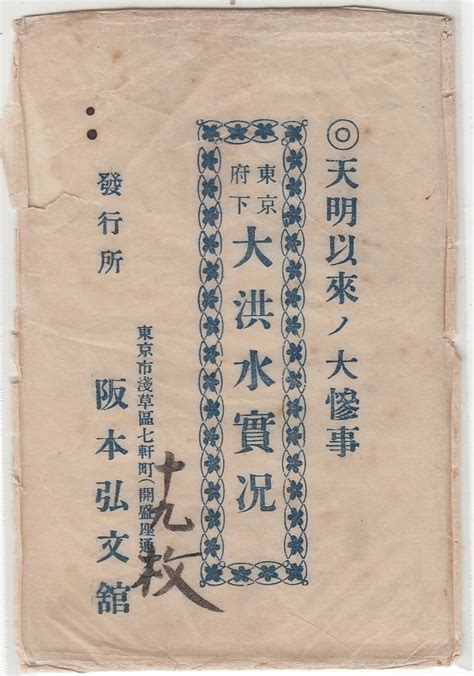 ◎天明以來ノ大慘事
東京府下大洪水實况
東京市淺草區七軒町(開盛座通
發行所
阪本弘文舘
十九枚